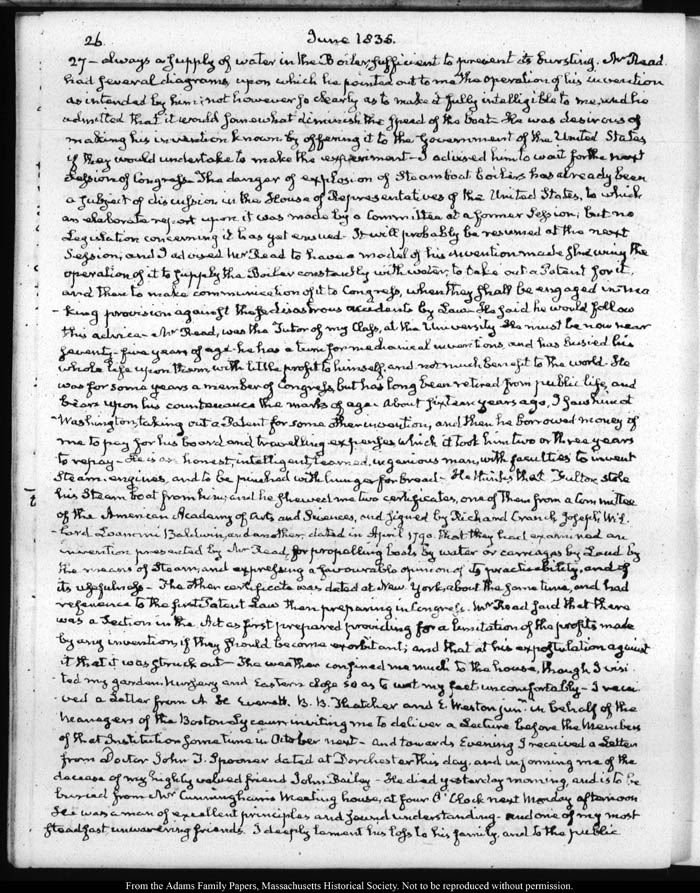 26.
June 1835.
27 — always a supply of water in the Boiler, sufficient to prevent its bursting. Mr Read
had several diagrams, upon which he pointed out to me the operation of his invention
as intended by him; not however so clearly as to make it fully intelligible to me, and he
admitted that it would somewhat diminish the speed of the boat — He was desirous of
making his invention known by offering it to the Government of the United States
if they would undertake to make the experiment — I advised him to wait for the next
Session of Congress — The danger of explosion of Steamboat boilers has already been
a subject of discussion in the House of Representatives of the United States, to which
an elaborate report upon it was made by a Committee at a former Session; but no
Legislation concerning it has yet ensued — It will probably be resumed at the next
Session, and I advised Mr Read to have a model of his invention made shewing the
operation of it to supply the Boiler constantly with water, to take out a Patent for it,
and then to make communication of it to Congress, when they shall be engaged in ma
-king provision against these disastrous accidents by Law — He said he would follow
this advice — Mr Read, was the Tutor of my Class, at the University — He must be now near
seventy-five years of age — he has a turn for mechanical inventions, and has busied his
whole life upon them, with little profit to himself, and not much benefit to the world. He
was for some years a member of Congress, but has long been retired from public life, and
bears upon his countenance the marks of age. About sixteen years ago, I saw him at
Washington, taking out a Patent for some other invention, and then he borrowed money of
me to pay for his board and travelling expenses which it took him two or three years
to repay — He is an honest, intelligent, learned, ingenious man, with faculties to invent
Steam-engines, and to be pinched with hunger for bread — He thinks that Fulton stole
his Steam boat from him; and he shewed me two certificates, one of them from a Committee
of the American Academy of Arts and Sciences, and signed by Richard Cranch, Joseph Wil-
-lard, Loammi Baldwin, and another, dated in April 1790. that they had examined an
invention presented by Mr Read, for propelling boats by water or carriages by Land by
the means of Steam, and expressing a favourable opinion of its practicability, and of
its usefulness — The other certificate was dated at New York, about the same time, and had
reference to the first Patent Law then preparing in Congress. Mr Read said that there
was a Section in the Act as first prepared providing for a limitation of the profits made
by any invention, if they should become exorbitant; and that at his expostulation against
it that it was struck out — The weather confined me much to the house, though I visi
-ted my garden nursery and Eastern close so as to wet my feet uncomfortably — I recei
-ved a Letter from A. H. Everett, B. B. Thatcher and E. Weston junr. in behalf of the
Managers of the Boston Lyceum inviting me to deliver a Lecture before the Members
of that Institution some time in October next — and towards Evening I received a Letter
from Doctor John T. Spooner dated at Dorchester this day, and informing me of the
decease of my highly valued friend John Bailey — He died yesterday morning, and is to be
buried from Mr Cunningham's Meeting house, at four O'Clock next Monday afternoon
He was a man of excellent principles and sound understanding — and one of my most
steadfast unwavering friends. I deeply lament his loss to his family, and to the public
From the Adams Family Papers, Massachusetts Historical Society. Not to be reproduced without permission.